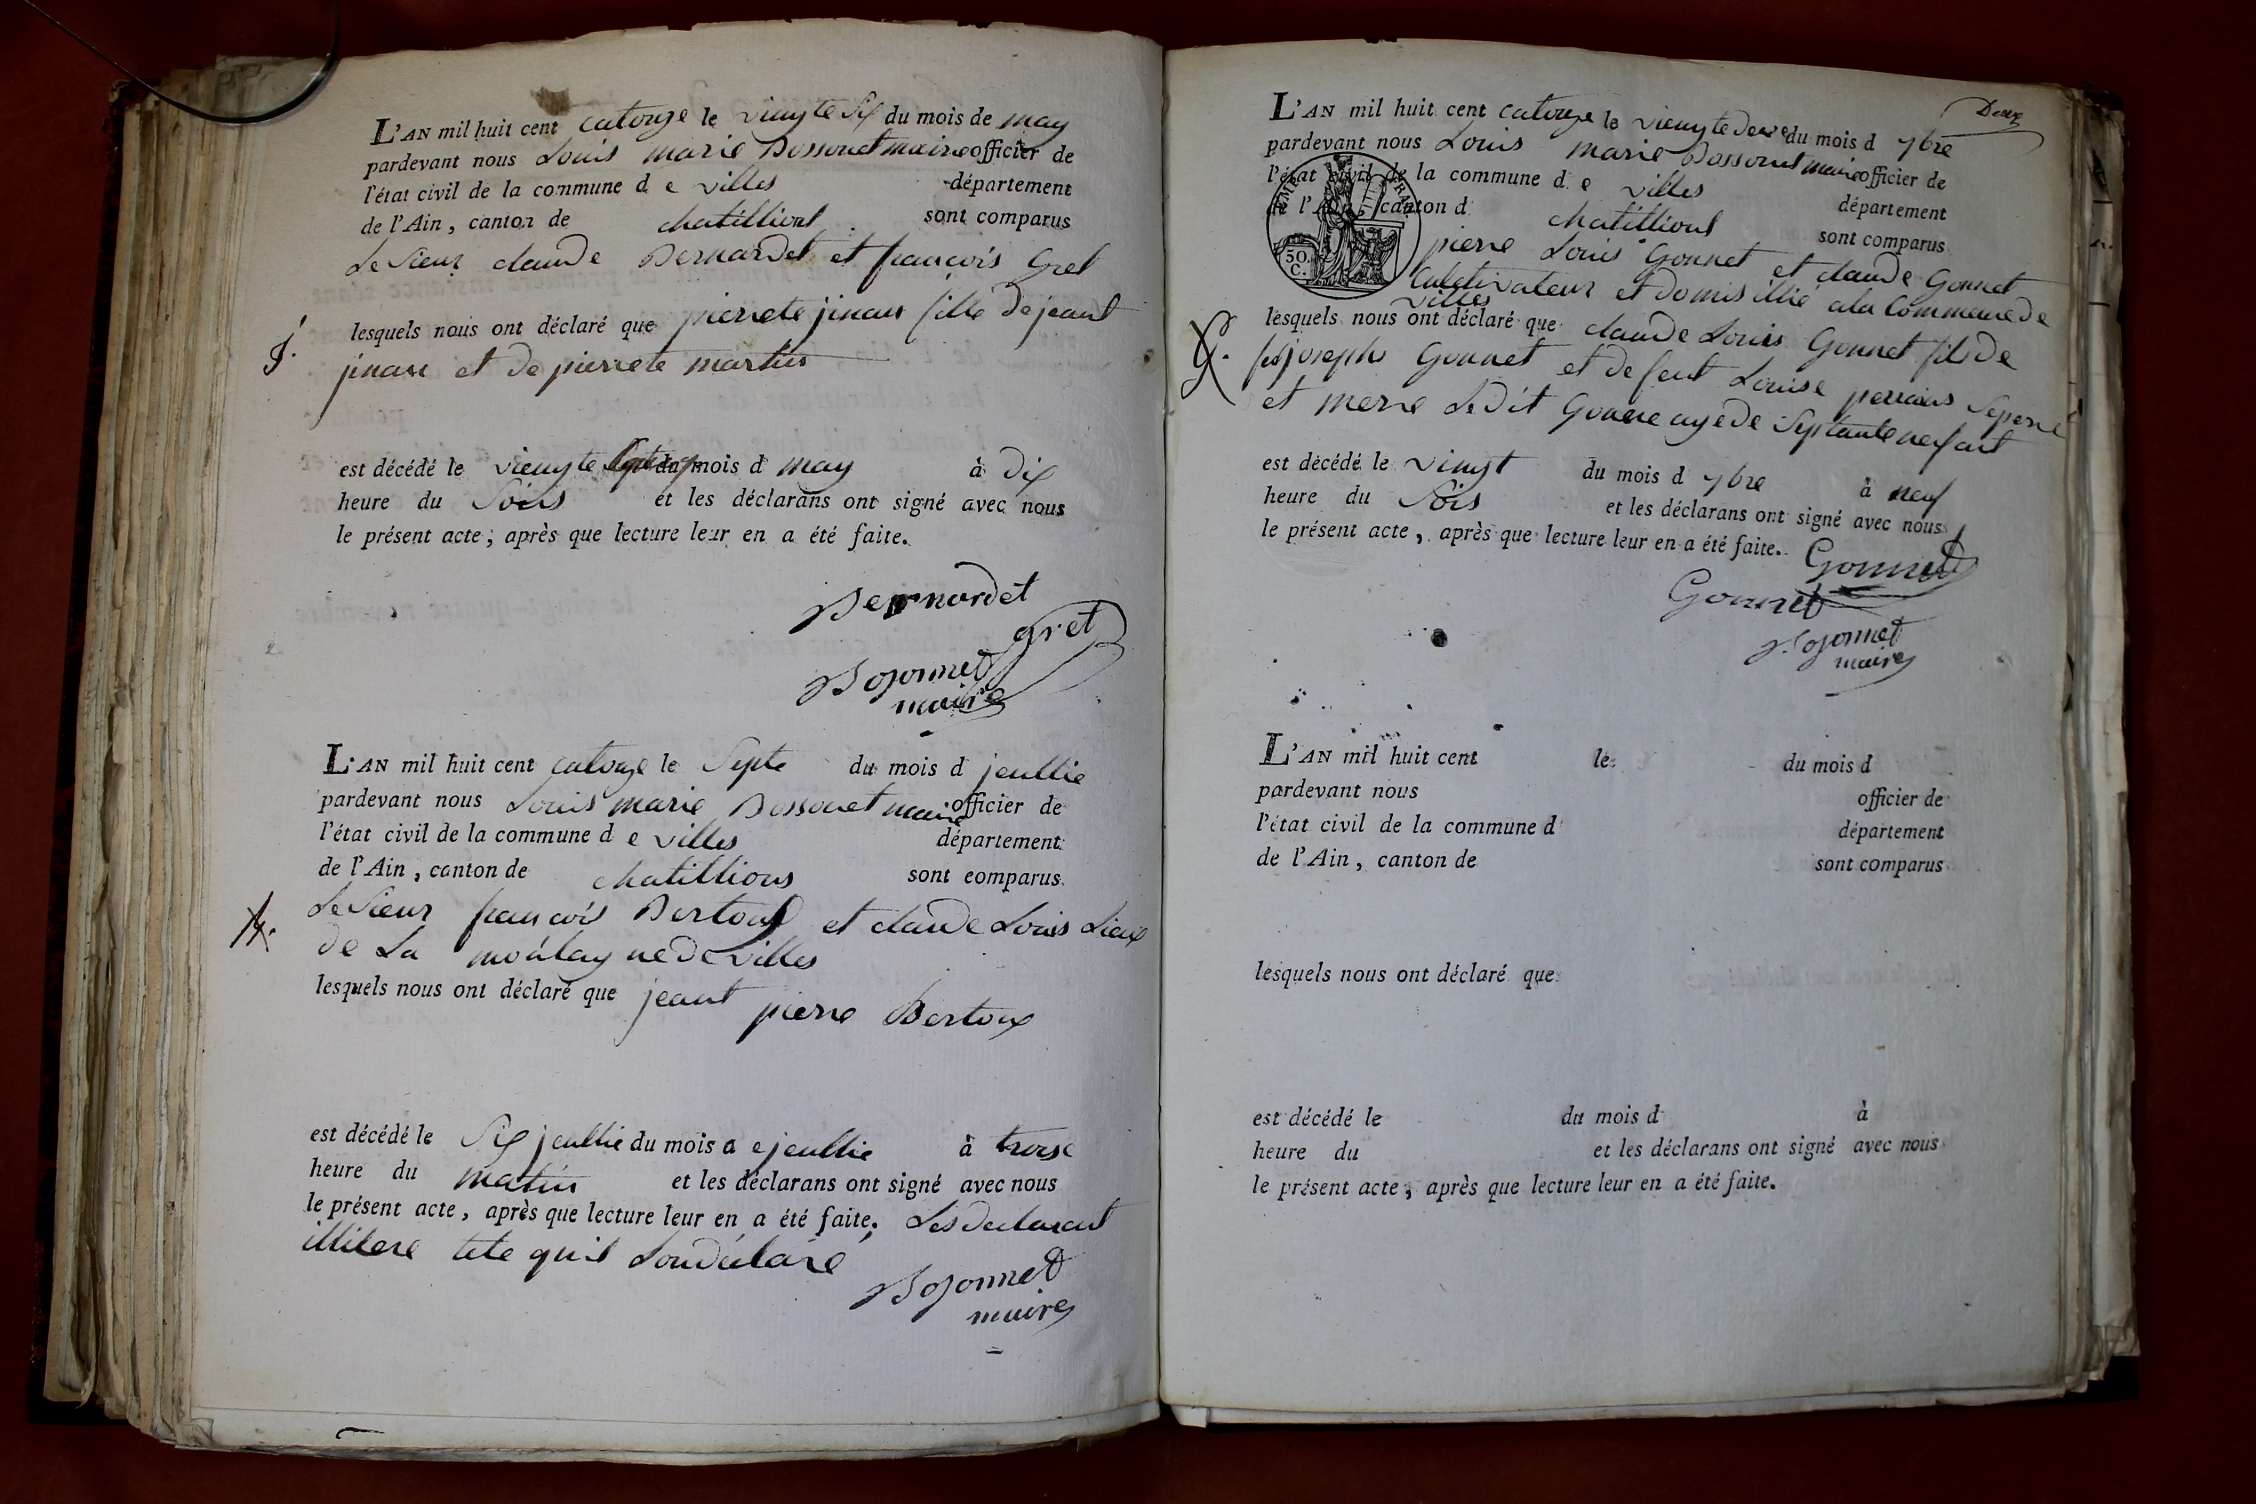 L'AN mil huit cent catorze le vieng te Six du mois de may
pardevant nous Louis marie Bossonet maire officier de
l'état civil de la commune d e villes département
de l'Ain, canton de chatilliont sont comparus
Le Sieur claude Bernardet et francois Gret
lesquels nous ont déclaré que pierrete jinau fille de jeant
jinau et de pierrete martin
est décédé le viengte du mois d may à dix
heure du Soirs et les déclarans ont signé avec nous
le présent acte; après que lecture leur en a été faite.
Bernardet
gret
Bosonnet
maire
L'AN mil huit cent catorze le Septe du mois d jeullie
pardevant nous Louis marie Bossonet maire officier de
l'état civil de la commune d e villes département
de l'Ain, canton de chatillions sont comparus
4.
Le Sieur francois Bertout et claude Louis
de La montagne de villes
lesquels nous ont déclaré que jeant pierre Bertoux
est décédé le Six jeullie du mois d e jeullie à troise
heure du matin et les déclarans ont signé avec nous
le présent acte, après que lecture leur en a été faite. Les declarant
illitere qu'il
Bosonnet
maire
Deux
L'AN mil huit cent catorze le viengte deuxe du mois d 7bre
pardevant nous Louis marie Bossonet maire officier de
l'état civil de la commune d e villes département
de l'Ain, canton d chatilliont sont comparus
EMP. FRA.
50.
C.
pierre Louis Gonnet et claude Gonnet
Cultivateur et domisillié a la Commune de
villes
lesquels nous ont déclaré que claude Louis Gonnet fils de
joseph Gonnet et de feut Louise
et merre Le Dit ayé de Septante
est décédé le vingt du mois d 7bre à neuf
heure du Soirs et les déclarans ont signé avec nous
le présent acte, après que lecture leur en a été faite.
Gonnet
Gonnet
Bosonnet
maire
L'AN mil huit cent le du mois d
pardevant nous officier de
l'état civil de la commune d département
de l'Ain, canton de sont comparus
lesquels nous ont déclaré que
est décédé le du mois d à
heure du et les déclarans ont signé avec nous
le présent acte, après que lecture leur en a été faite.